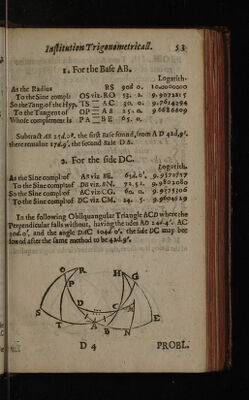 Institution Trigonometricall. 53
1. For the Base AB.
Logarith.
As the Radius RS 90d 0. 10.0000000
To the Sine compl: OS viz. RO 53. 2. 9.9072215
So the Tang. of the Hyp. TS = AC 30. 0. 9.7614394
To the Tangent of OP = AB 25. 0. 9.6686609
Whose complement is PA = BE 65. 0.
Subtract AB 25d,0'. the first Base found, from AD 42d,9',
there remains 17d,9'. the second Base DB.
2. For the side DC.
Logarith.
As the Sine compl of AB viz BE. 65d,0'. 9.9572757
To the Sine compl of DB viz. BN. 72. 51. 9.9802080
So the Sine compl of AC viz CG. 60. 0. 9.9375306
To the Sine compl of DC viz CM. 24. 5. 9.9604629
In the following Obliquangular Triangle ACD where the
Perpendicular falls without, having the sides AD
and the angle DAC the side DC may bee
found after the same method to be 42d,9'.
O R H G
P
D C M
S T I A B N E
D 4 PROBL.